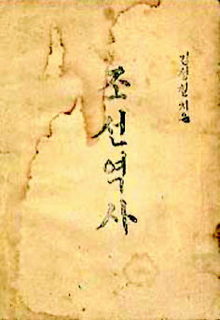 김성칠 지음
조선역사